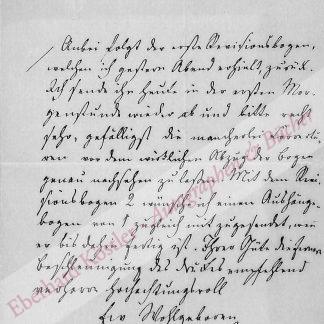 Anbei folgt der erste Revisionsbogen,
welchen ich gestern Abend erhielt, zurück.
Ich sende ihn heute in der ersten Mor-
genstunde wieder ab und bitte recht
sehr, gefälligst die mancherlei Correctu-
ren vor dem wirklichen Abzug der Bogen
genau nachsehen zu lassen. Mit dem Revi-
sionsbogen 2 wünsche ich einen Aushänge-
bogen von 1 zugleich mit zugesendet, wenn
er bis dahin fertig ist. Ihrer Güte die fernere
Beschleunigung des Druckes empfehlend
verharre Hochachtungsvoll
Ew Wohlgeboren
Eberhard Köstler - Autographen & Bücher